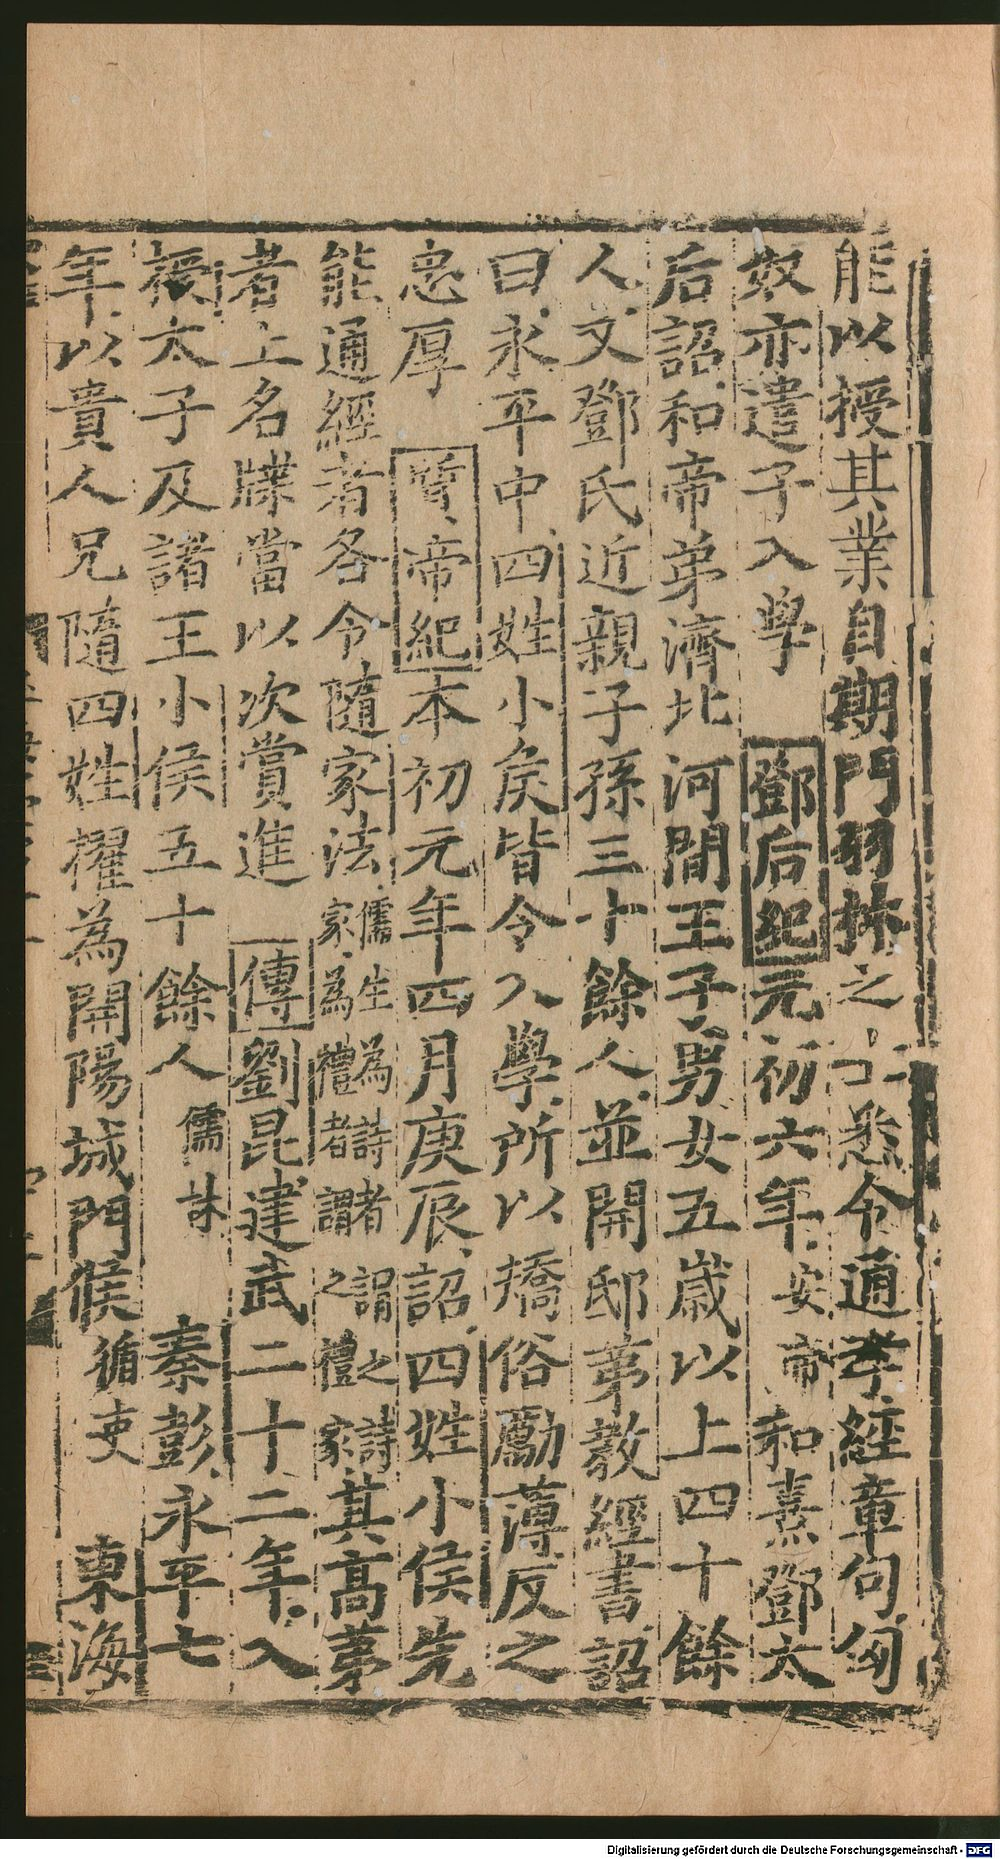 能以授其業自期門羽林之士悉令通孝經章句匈
奴亦遣子入學 鄧后紀元初六年安帝和熹鄧太
后詔和帝弟濟北河間王子男女五歲以上四十餘
人又鄧氏近親子孫三十餘人並開邸第教經書詔
曰永平中四姓小矦皆令入學所以矯俗勵薄反之
忠厚 質帝紀本初元年四月庚辰詔四姓小侯先
能通經者各令隨家法儒生為詩者謂之詩家為禮者謂之禮家其高第
者上名牒當以次賞進 傳劉昆建武二十二年入
授太子及諸王小侯五十餘人儒林 秦彭永平七
年以貴人兄隨四姓擢為開陽城門候循吏 東海
Digitalisierung gefördert durch die Deutsche Forschungsgemeinschaft - DFG